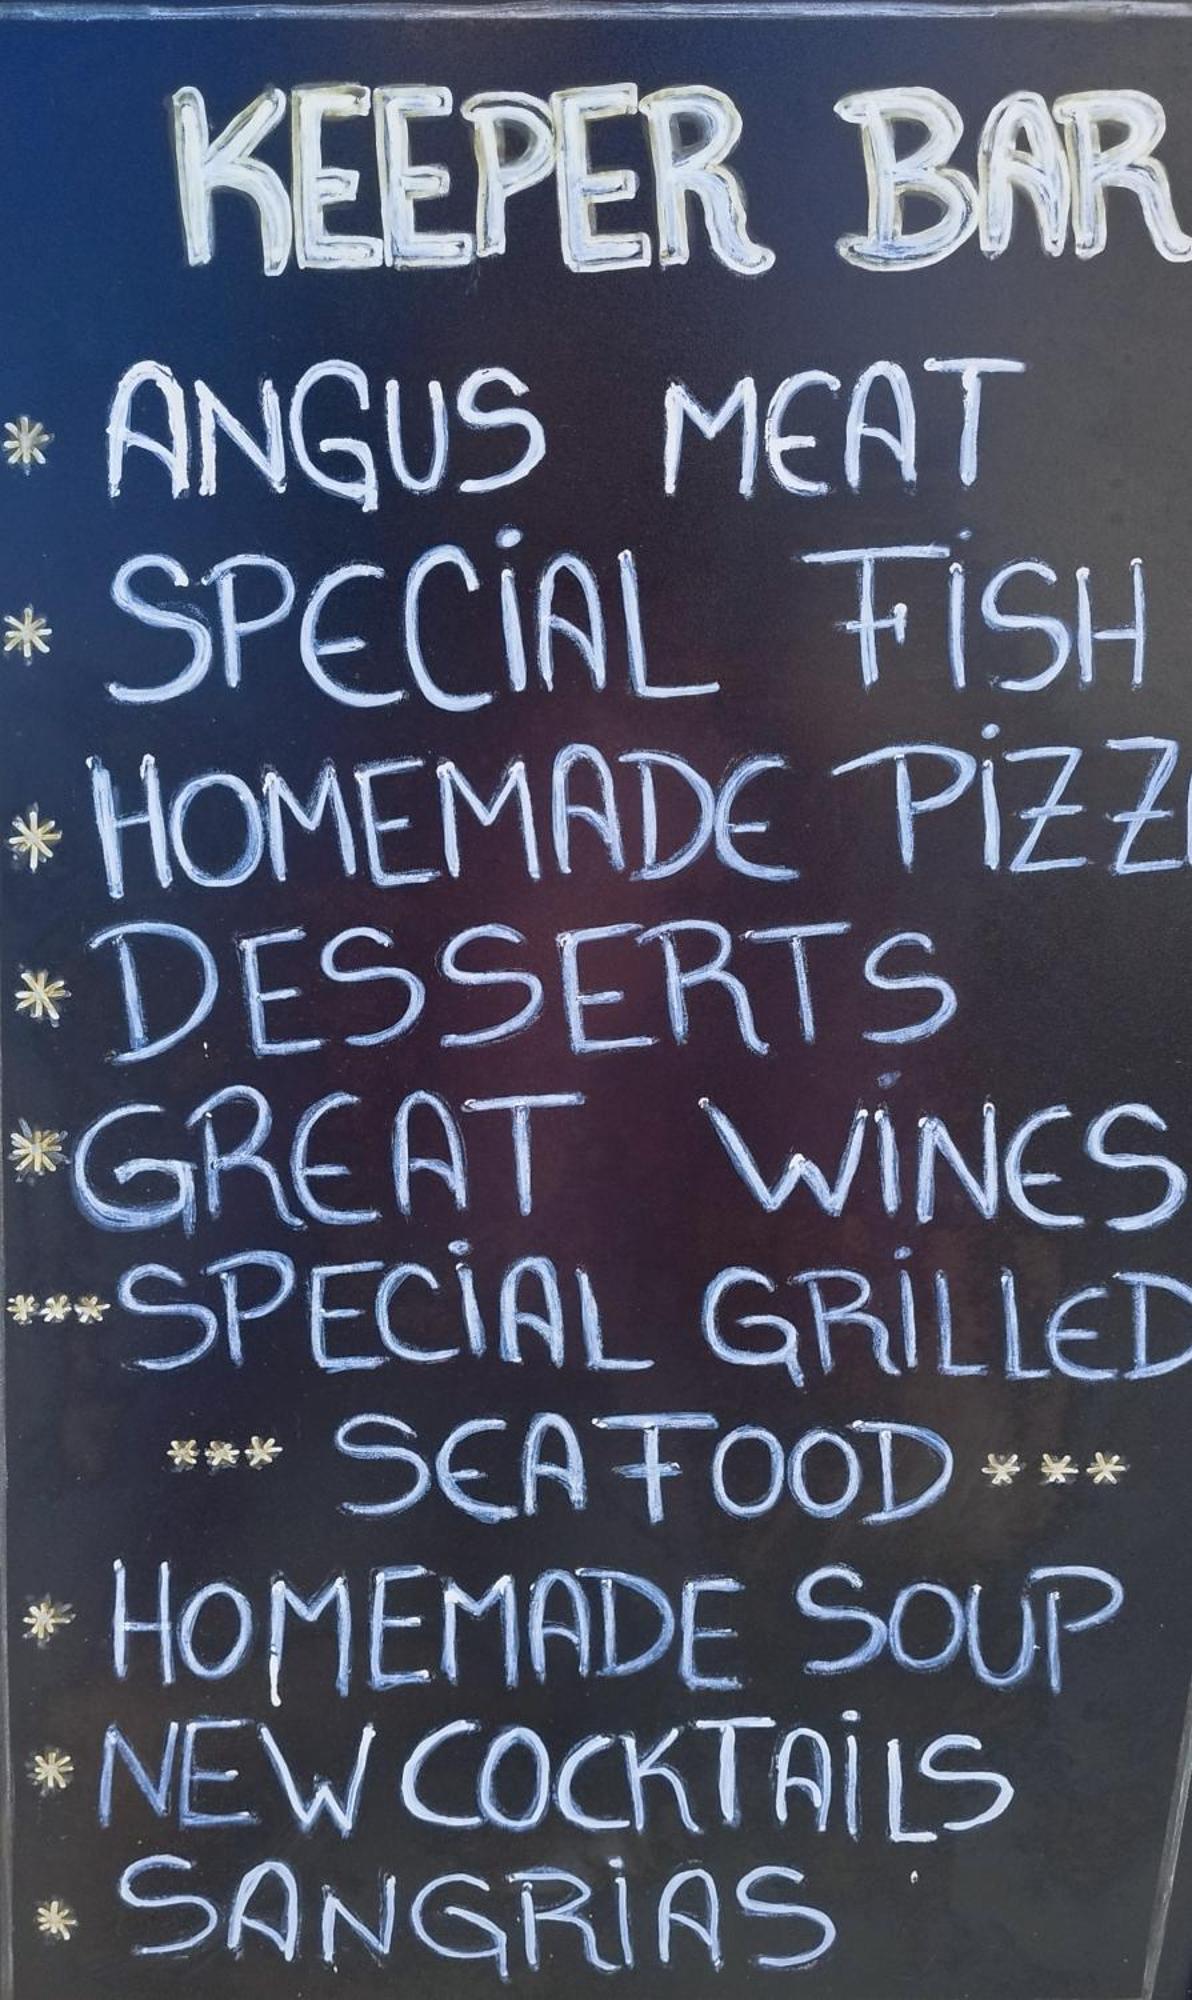 KEEPER BAR
* ANGUS MEAT
* SPECiAL FiSH
* HOMEMADE PiZZ
* DESSERTS
* GREAT WiNES
*** SPECiAL GRiLLED
*** SEAFOOD ***
* HOMEMADE SOUP
* NEW COCKTAiLS
* SANGRiAS